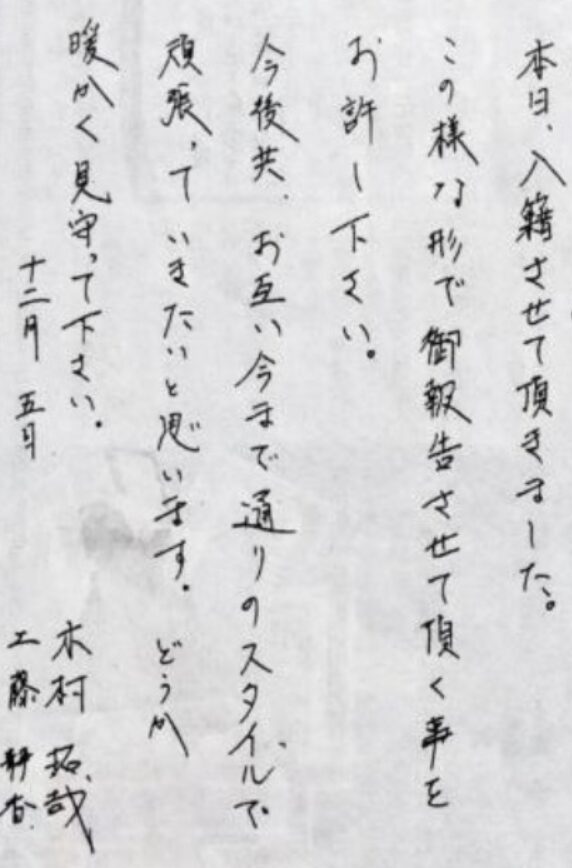 本日、入籍させて頂きました。
この様な形で御報告させて頂く事を
お許し下さい。
今後共、お互い今まで通りのスタイルで
頑張っていきたいと思います。どうか
暖かく見守って下さい。
十二月 五日
木村 拓哉
工藤 静香